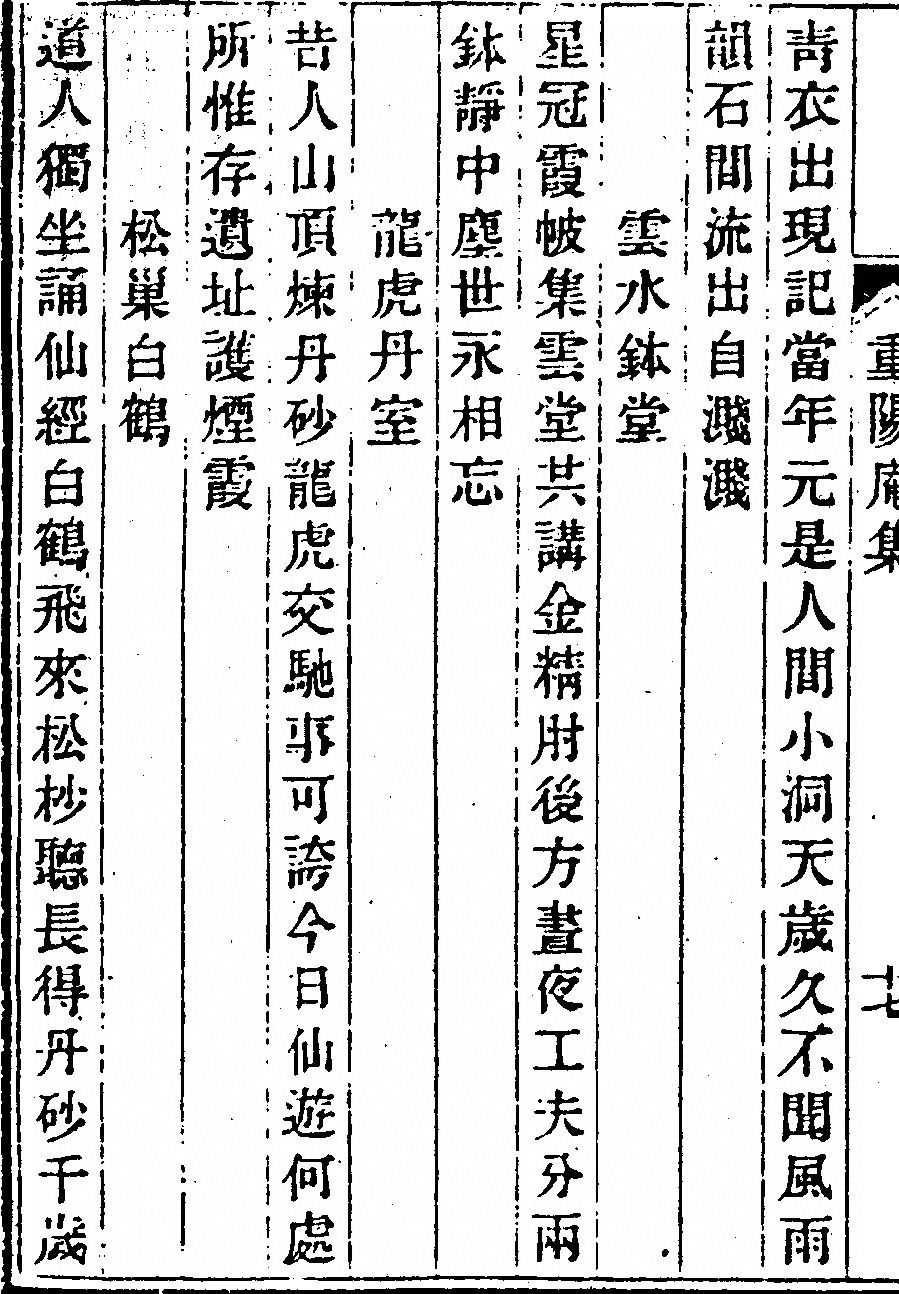 重陽庵集
十七
青衣出現記當年元是人間小洞天歲久不聞風雨
韻石間流出自濺濺
雲水鉢堂
星冠霞帔集雲堂共講金精肘後方晝夜工夫分兩
鉢靜中塵世永相忘
龍虎丹室
昔人山頂煉丹砂龍虎交馳事可誇今日仙遊何處
所惟存遺址護煙霞
松巢白鶴
道人獨坐誦仙經白鶴飛來松杪聽長得丹砂千歲